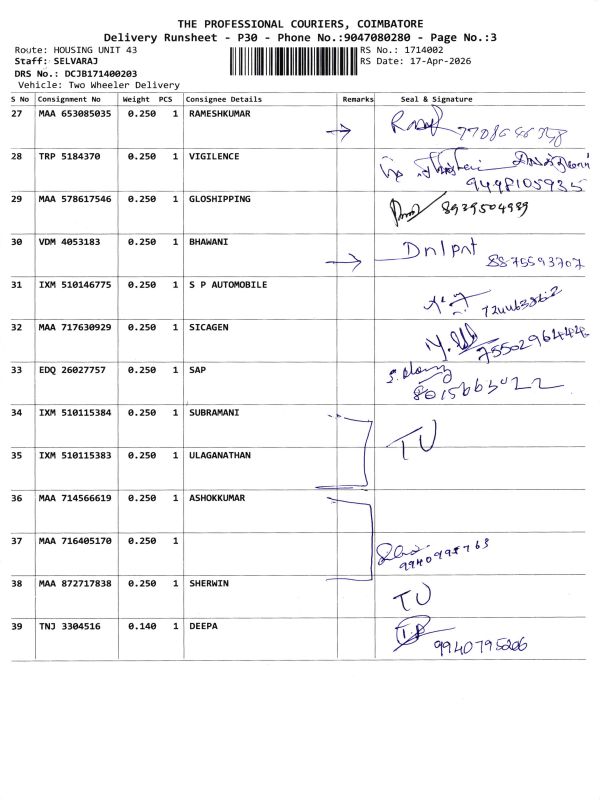 THE PROFESSIONAL COURIERS, COIMBATORE
Delivery Runsheet - P30 - Phone No.:9047080280 - Page No.:3
Route: HOUSING UNIT 43 RS No.: 1714002
Staff: SELVARAJ RS Date: 17-Apr-2026
DRS No.: DCJB171400203
Vehicle: Two Wheeler Delivery
S No Consignment No Weight PCS Consignee Details Remarks Seal & Signature
27 MAA 653085035 0.250 1 RAMESHKUMAR
28 TRP 5184370 0.250 1 VIGILENCE
9498105935
29 MAA 578617546 0.250 1 GLOSHIPPING 8939504989
30 VDM 4053183 0.250 1 BHAWANI Dnlpnt
8875593707
31 IXM 510146775 0.250 1 S P AUTOMOBILE
32 MAA 717630929 0.250 1 SICAGEN
33 EDQ 26027757 0.250 1 SAP
8015663022
34 IXM 510115384 0.250 1 SUBRAMANI TU
35 IXM 510115383 0.250 1 ULAGANATHAN
36 MAA 714566619 0.250 1 ASHOKKUMAR
37 MAA 716405170 0.250 1
38 MAA 872717838 0.250 1 SHERWIN TU
39 TNJ 3304516 0.140 1 DEEPA
9940795206